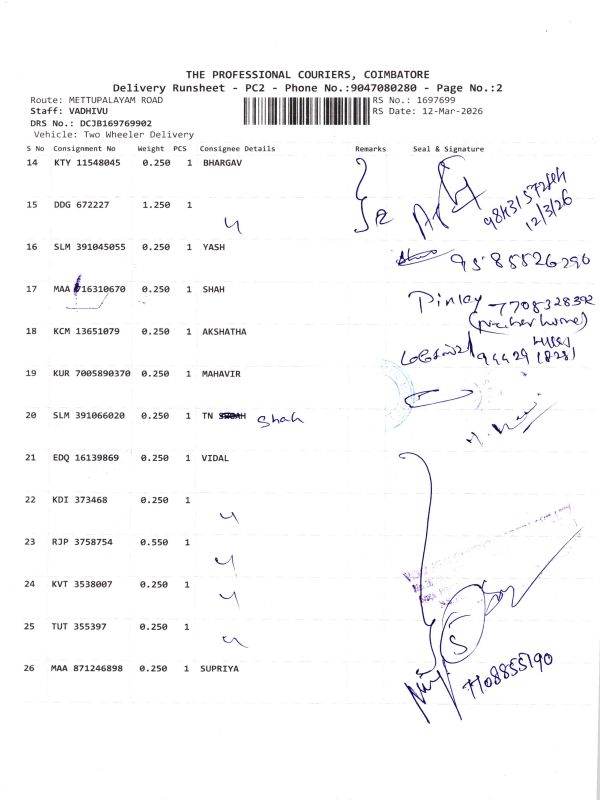 THE PROFESSIONAL COURIERS, COIMBATORE
Delivery Runsheet - PC2 - Phone No.:9047080280 - Page No.:2
Route: METTUPALAYAM ROAD RS No.: 1697699
Staff: VADHIVU RS Date: 12-Mar-2026
DRS No.: DCJB169769902
Vehicle: Two Wheeler Delivery
S No Consignment No Weight PCS Consignee Details Remarks Seal & Signature
14 KTY 11548045 0.250 1 BHARGAV
12/3/26
15 DDG 672227 1.250 1
16 SLM 391045055 0.250 1 YASH
9585526290
17 MAA 716310670 0.250 1 SHAH
7708328392
18 KCM 13651079 0.250 1 AKSHATHA
19 KUR 7005890370 0.250 1 MAHAVIR
20 SLM 391066020 0.250 1 TN Shah
21 EDQ 16139869 0.250 1 VIDAL
22 KDI 373468 0.250 1
23 RJP 3758754 0.550 1
24 KVT 3538007 0.250 1
25 TUT 355397 0.250 1
26 MAA 871246898 0.250 1 SUPRIYA